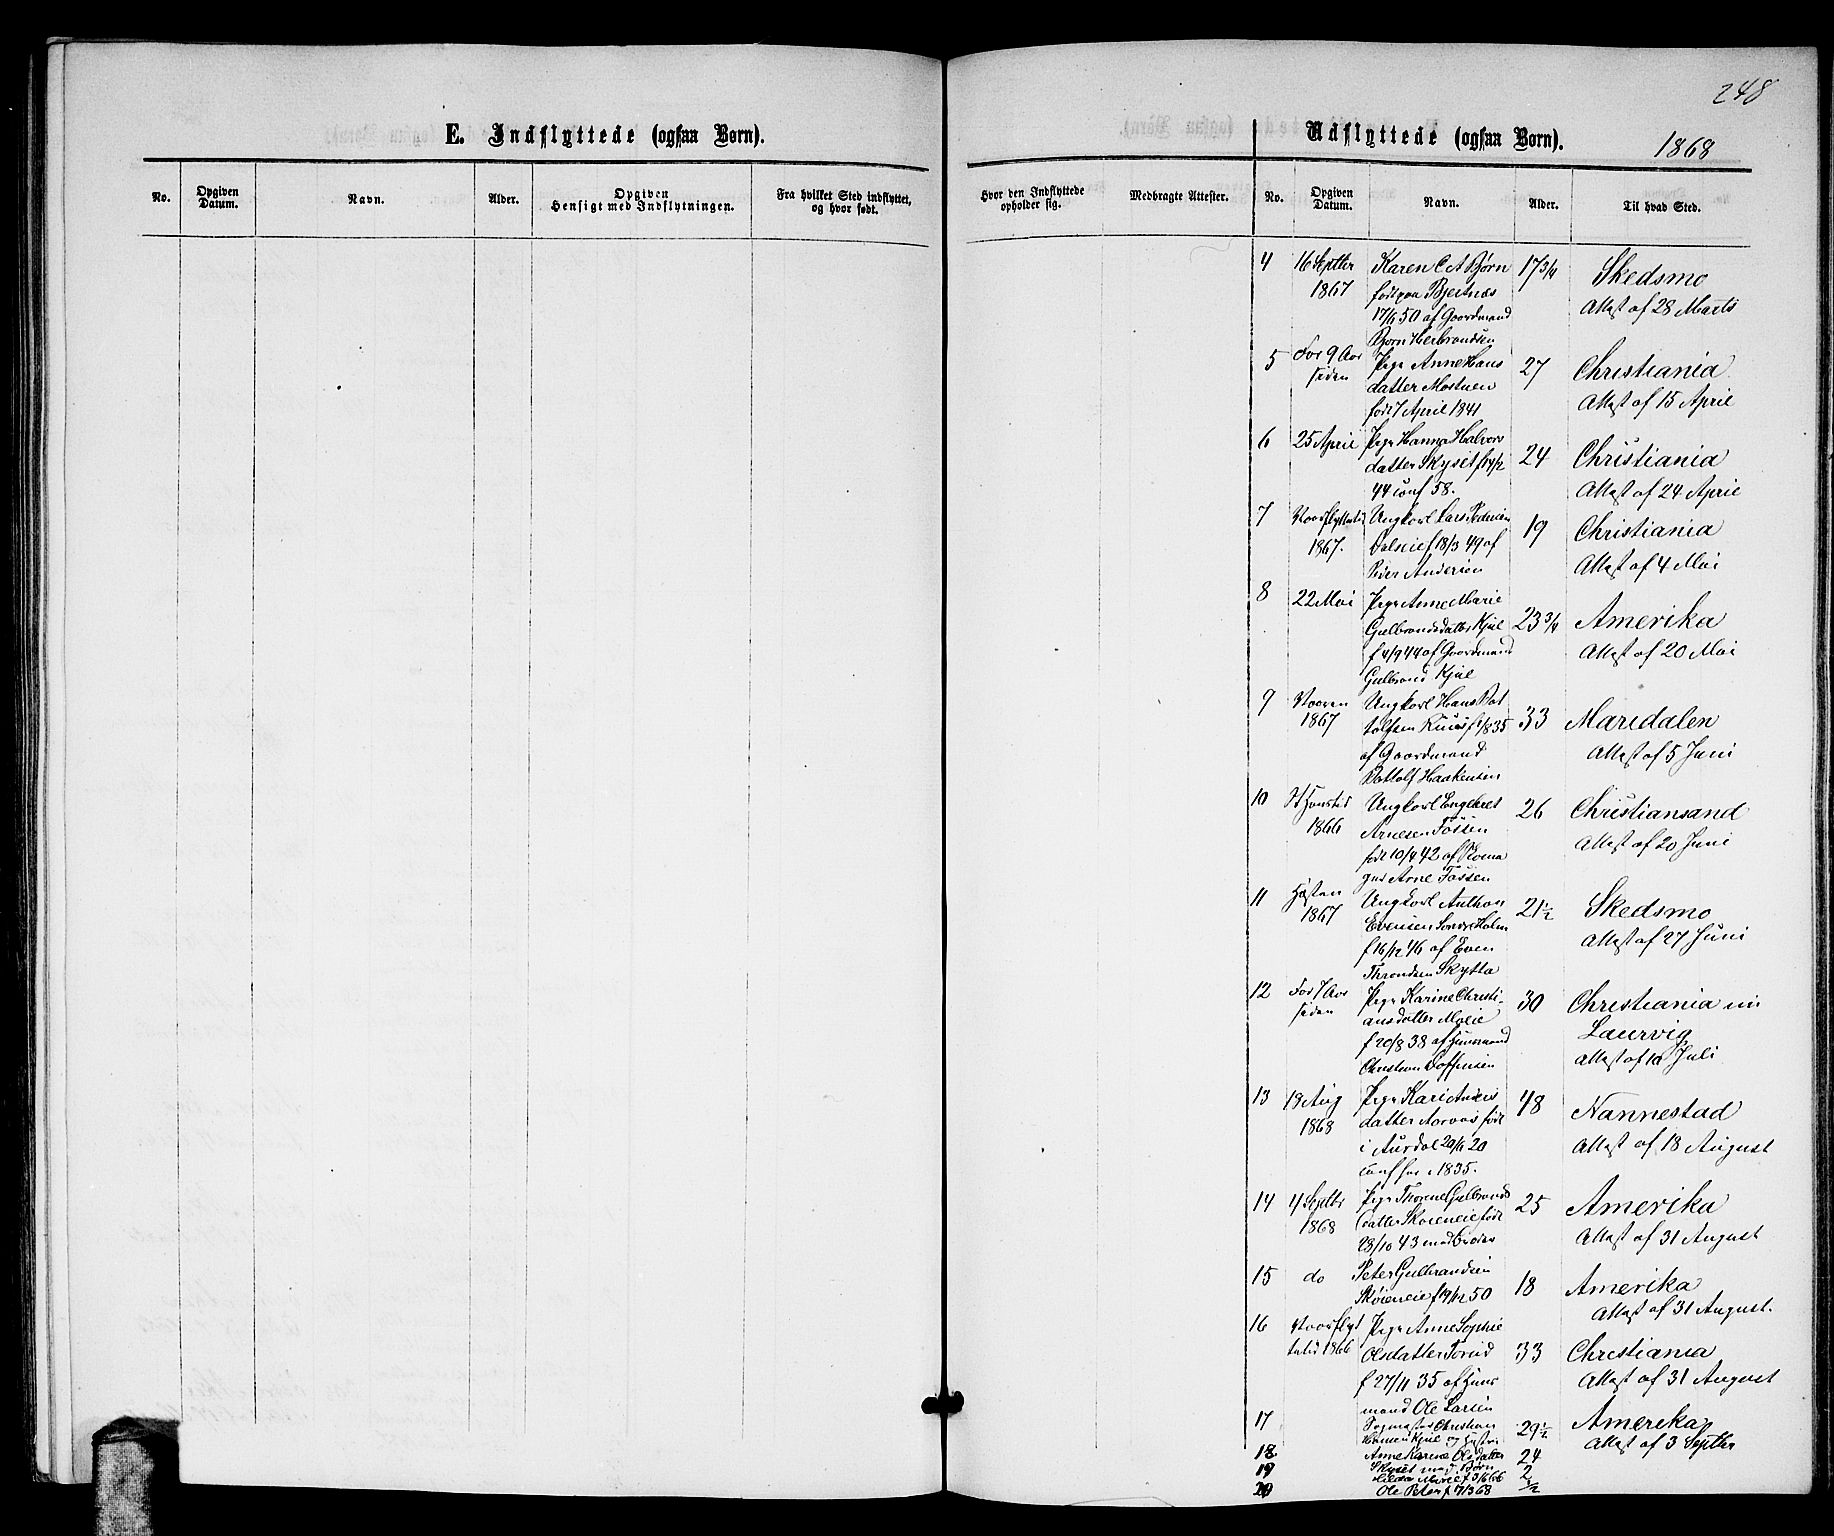 248
E. Indflyttede (ogsaa Børn).
No.
Opgiven Datum.
Navn.
Alder.
Opgiven Hensigt med Indflytningen.
Fra hvilket Sted indflyttet, og hvor født.
Udflyttede (ogsaa Børn).
1868
Hvor den Indflyttede opholder sig.
Medbragte Attester.
No.
Opgiven Datum.
Navn.
Alder.
Til hvad Sted.
4 16 Septbr Karen C A Bjørn 17 3/4 Skedsmo
1867 født paa Bjertnæs Attest af 28 Marts
17/6 50 af Gaardmand
Bjørn Herbrandsen
5 For 9 Aar Pige Anne Hans 27 Christiania
siden datter Mostuen Attest af 15 April
født 7 April 1841
6 25 April Pige Hanna Halvors 24 Christiania
datter Skyset
44 conf 58. Attest af 24 April
7 Vaarflyttetid Ungkarl Lars Pedersen 19 Christiania
1867. f 18/3 49 af Attest af 4 Mai
Peder Andersen
8 22 Mai Pige Anne Marie 23 3/4 Amerika
Gulbrandsdatter Kjul
f 4/9 44 af Gaardmand Attest af 20 Mai
Gulbrand Kjul
9 Vaaren Ungkarl Hans Bot 33 Maridalen
1867 tolfsen
af Gaardmand Attest af 5 Juni
Bottolf Haakensen
10 St Hanstid Ungkarl Engebret 26 Christiansand
1866 Arnesen Tøssen
født 10/4 42 af Attest af 20 Juni
Arne Tøssen
11 Høsten Ungkarl Anthon 21 1/2 Skedsmo
1867 Evensen Søndre Holm
f 16/12 46 af Even Attest af 27 Juni
Throndsen Skytta
12 For 7 Aar Pige Karine Christi- 30 Christiania nu
siden ansdatter Laurvig
f 20/8 38 af Huusmand Attest af 10 Juli
Christian
13 19 Aug Pige Kari Anders 48 Nannestad
1868 datter født
i Aurdal 29/6 20 Attest af 18 August
conf 1835.
14 4 Septbr Pige Thorine Gulbrands 25 Amerika
1868 datter Skøieneie født
28/10 43 med Broder Attest af 31 August
15 do Peter Gulbrandsen 18 Amerika
Skøieneie f 19/12 50 Attest af 31 August.
16 Vaarflyt Pige Anne Sophie 33 Christiania
tetid 1866 Olsdatter Torud
f 27/11 35 af Huus Attest af 31 August
mand Ole Larsen
17 Christian 29 1/2 Amerika
Hansen Kjul og Hustru Attest af 3 Septbr
18 Anne Karine Olsdatter 24
19 Skyset med Børn 2
20 Ole Peter f 7/3 68 1/2